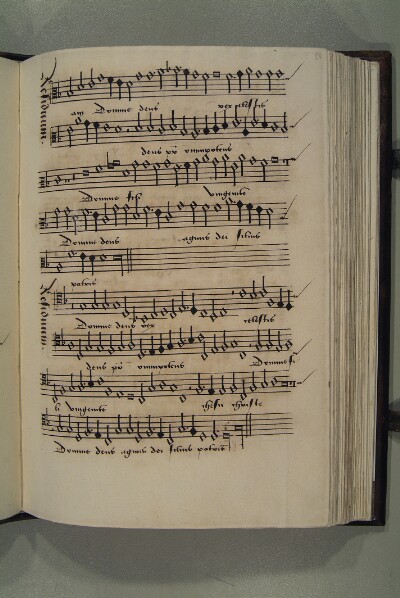 Domine deus rex celestis
deus pr omnipotens
Domine fili unigenite
Domine deus agnus dei filius
patris
Domine deus rex celestis
deus pr omnipotens Domine fi
li unigenite Jhesu christe
Domine deus agnus dei filius patris